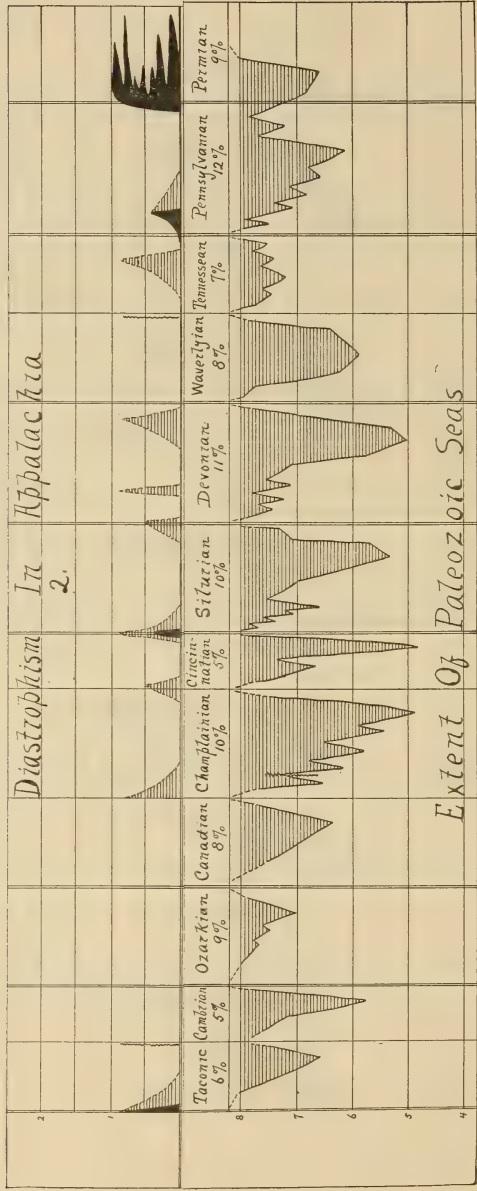 Diastrophism In Appalachia
2.
2
1
Taconic
6%
Cambrian
5%
Ozarkian
9%
Canadian
8%
Champlainian
10%
Cincin-
natian
5%
Silurian
10%
Devonian
11%
Waverlyian
8%
Tennessean
7%
Pennsylvanian
12%
Permian
9%
8
7
6
5
4
Extent Of Paleozoic Seas